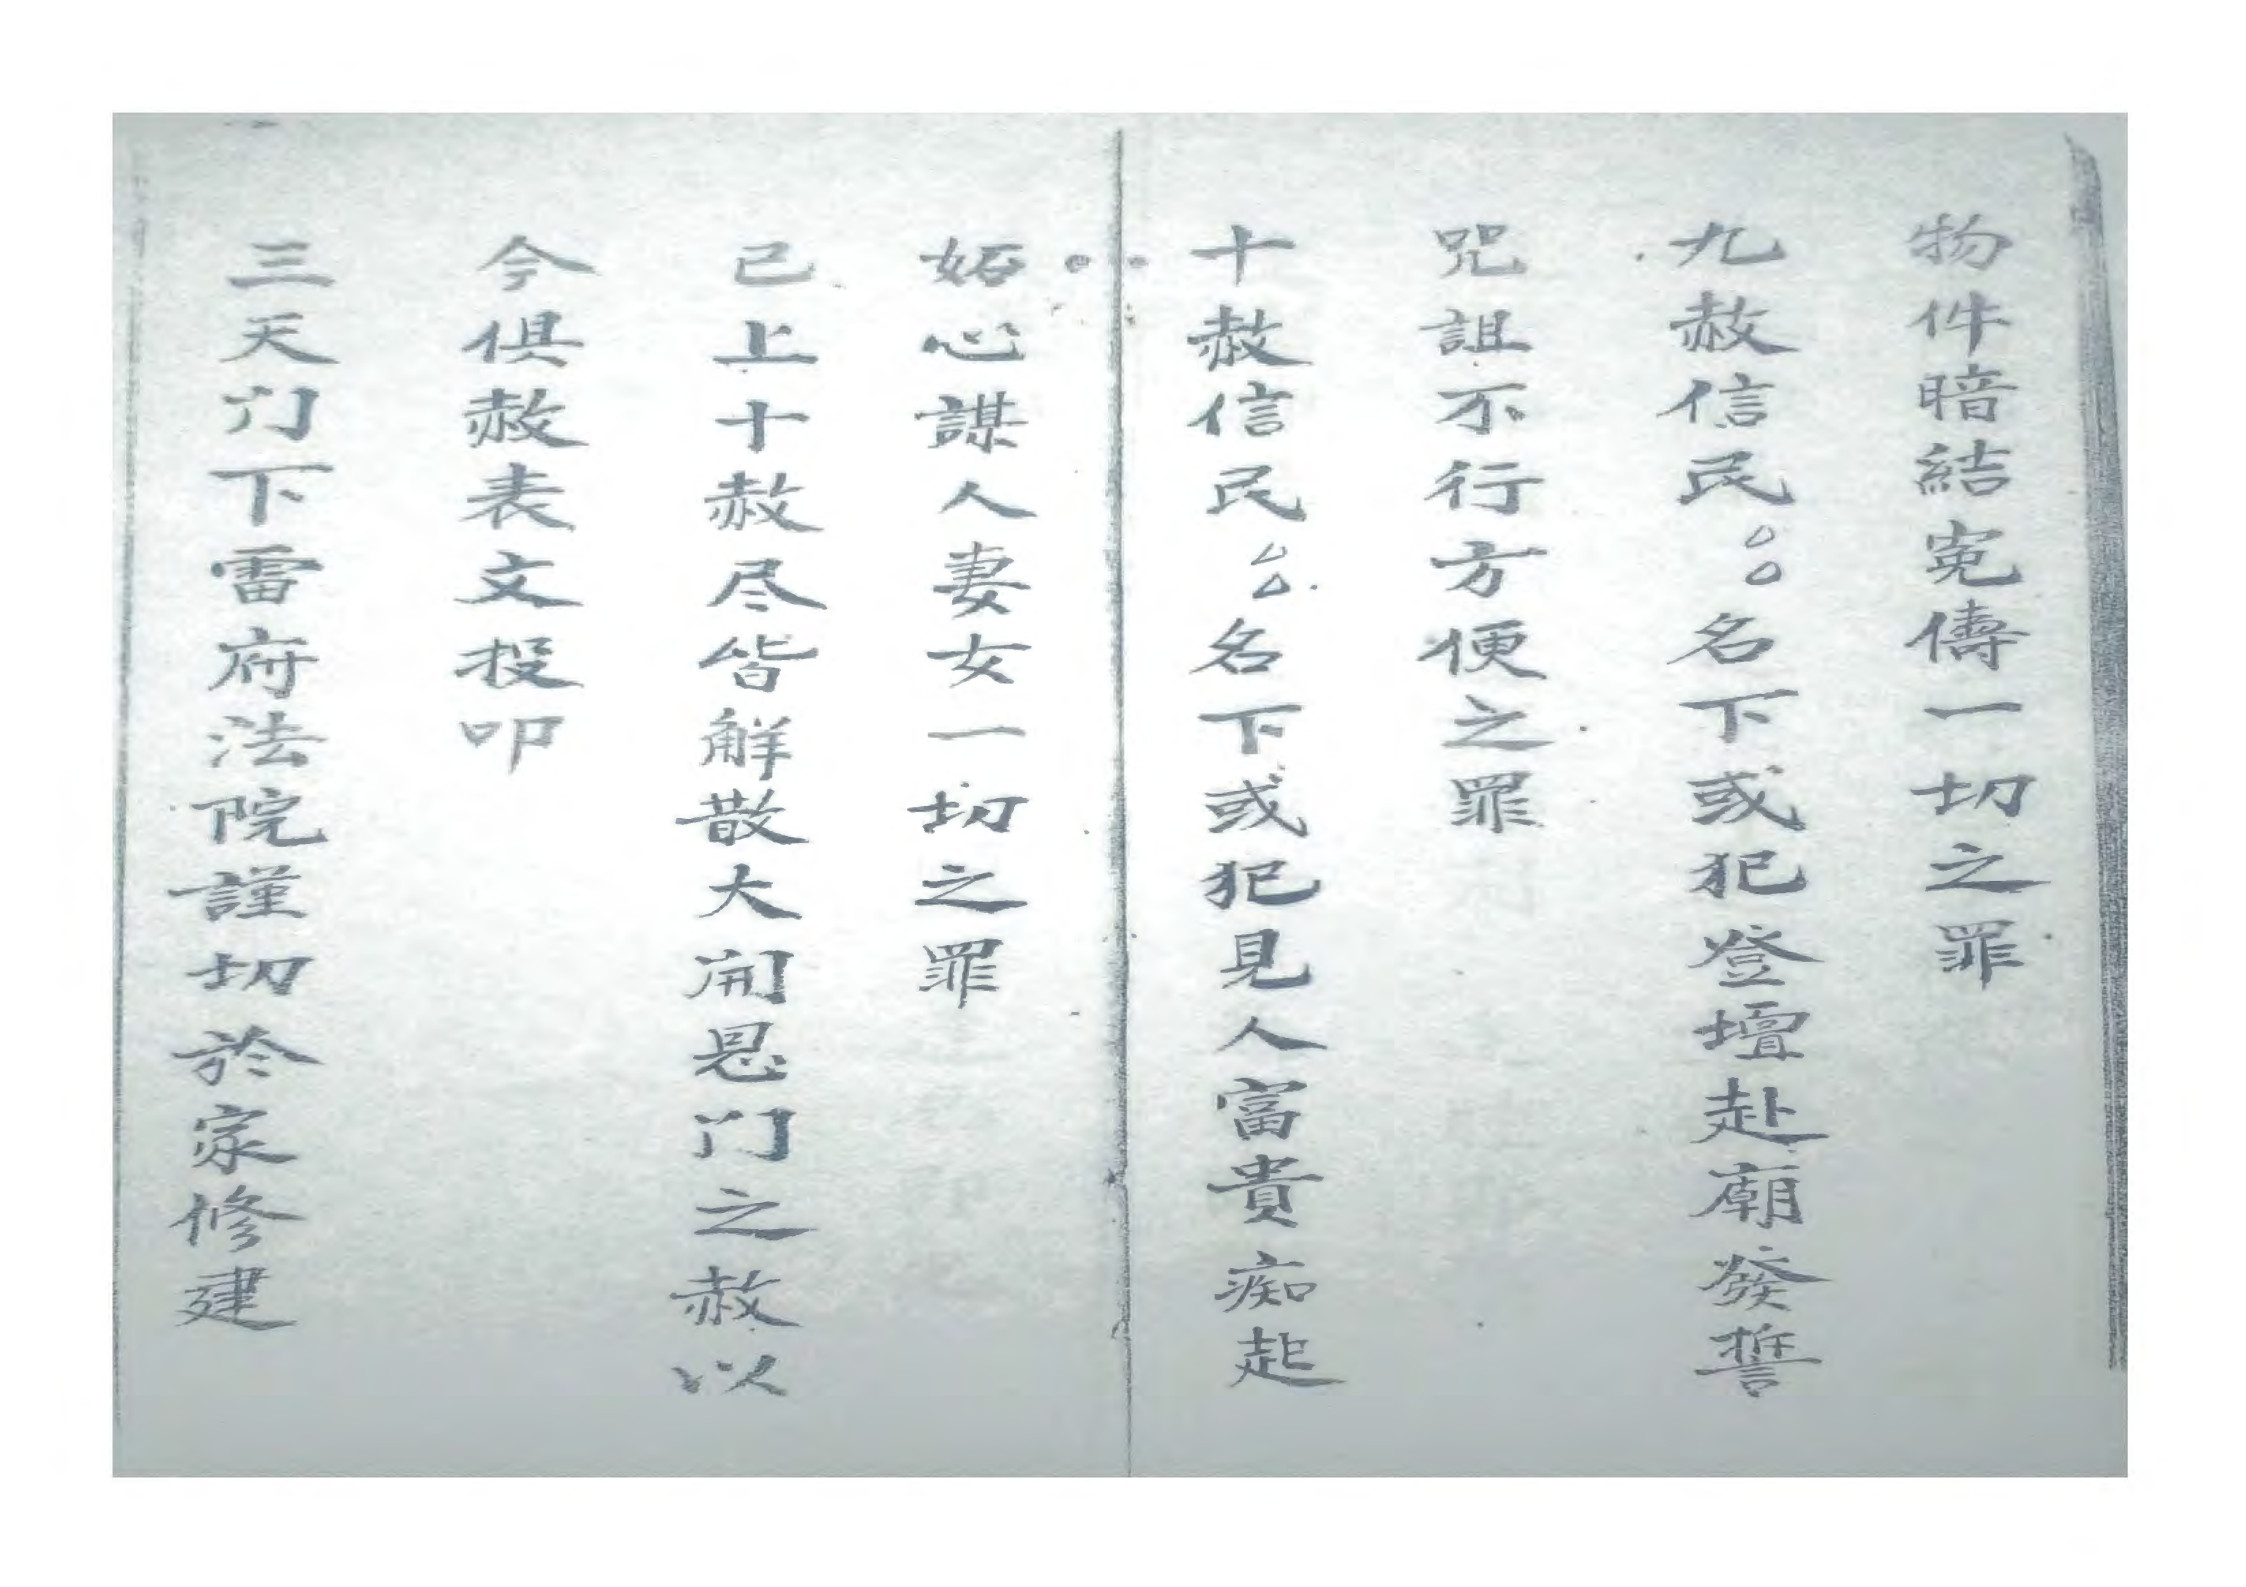 物件暗結寃儔一切之罪
九赦信民○○名下或犯登壇赴廟發誓
咒詛不行方便之罪
十赦信民○○名下或犯見人富貴痴起
妬心謀人妻女一切之罪
已上十赦尽皆觧散大開恩门之赦以
今俱赦表文投叩
三天门下雷府法院謹切於家修建